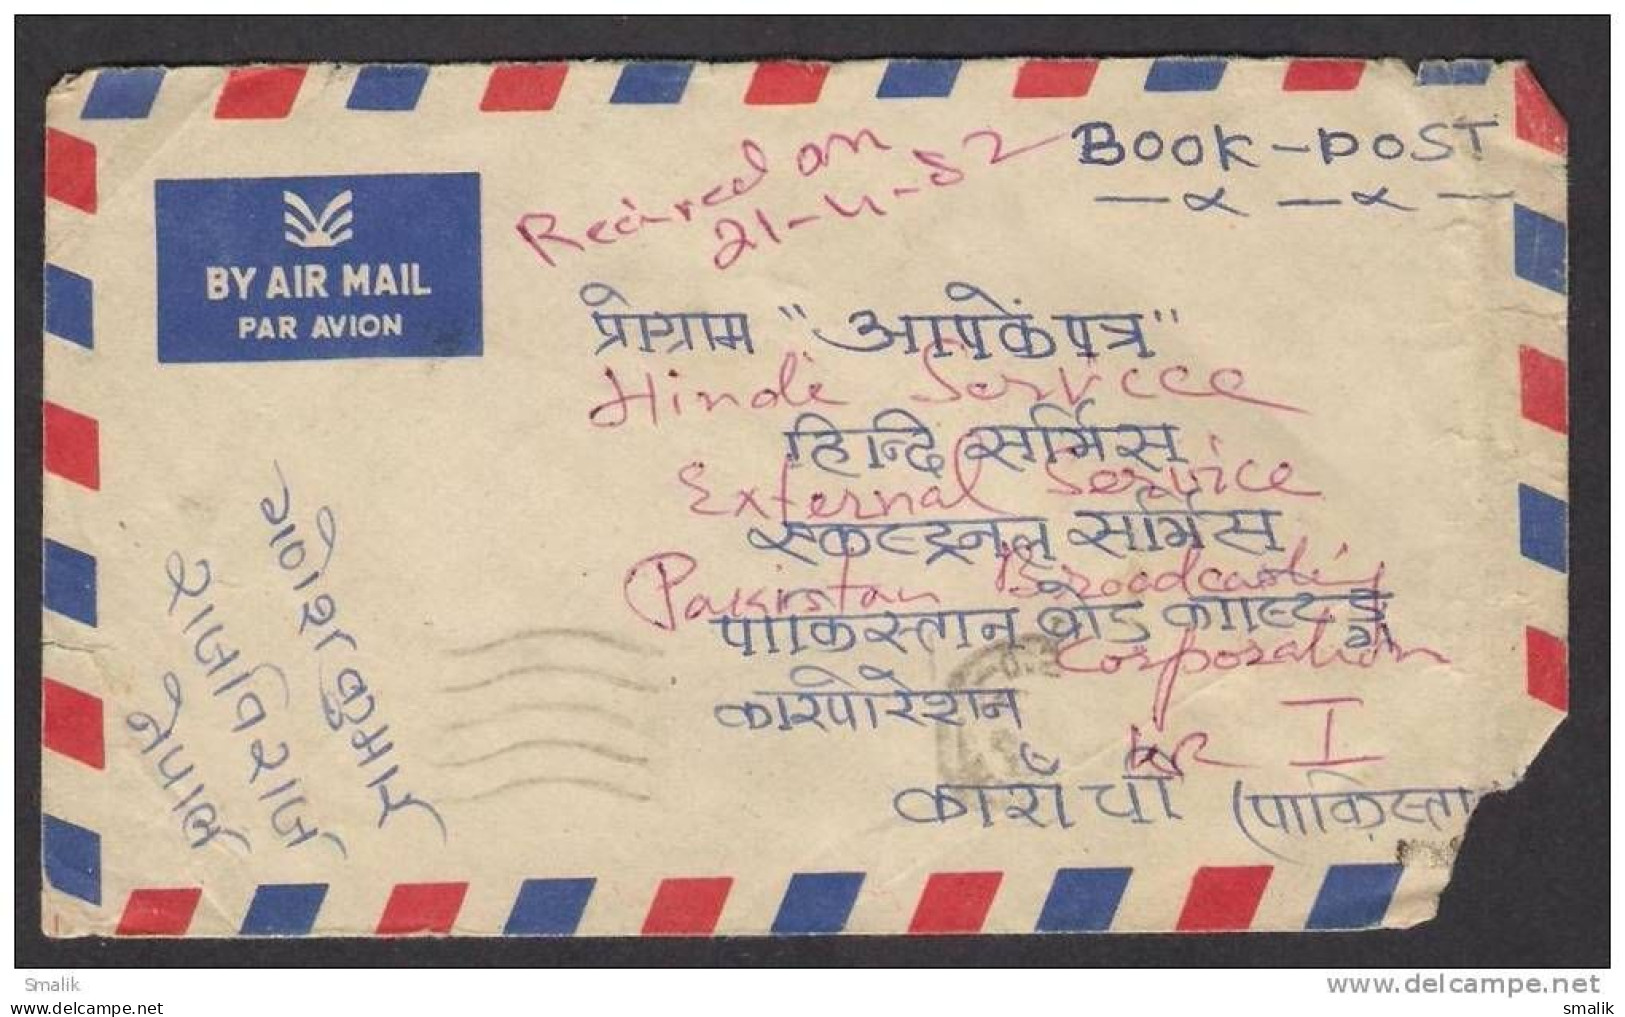 BOOK-POST
Recived on
21-4-82
BY AIR MAIL
PAR AVION
प्रोग्राम "आपकें पत्र"
Hindi Service
हिन्दि सर्भिस
External Service
एकस्ट्रनल सर्भिस
Pakistan Broadcasting
पाकिस्तान ब्रोड कास्टिङ्ग
Corporation
कारपोरेशन
KR I
काराँची (पाकिस्ता
गणेश कुमार
राजविराज
नेपाल
Smalik
delcampe.net
smalik
smalik